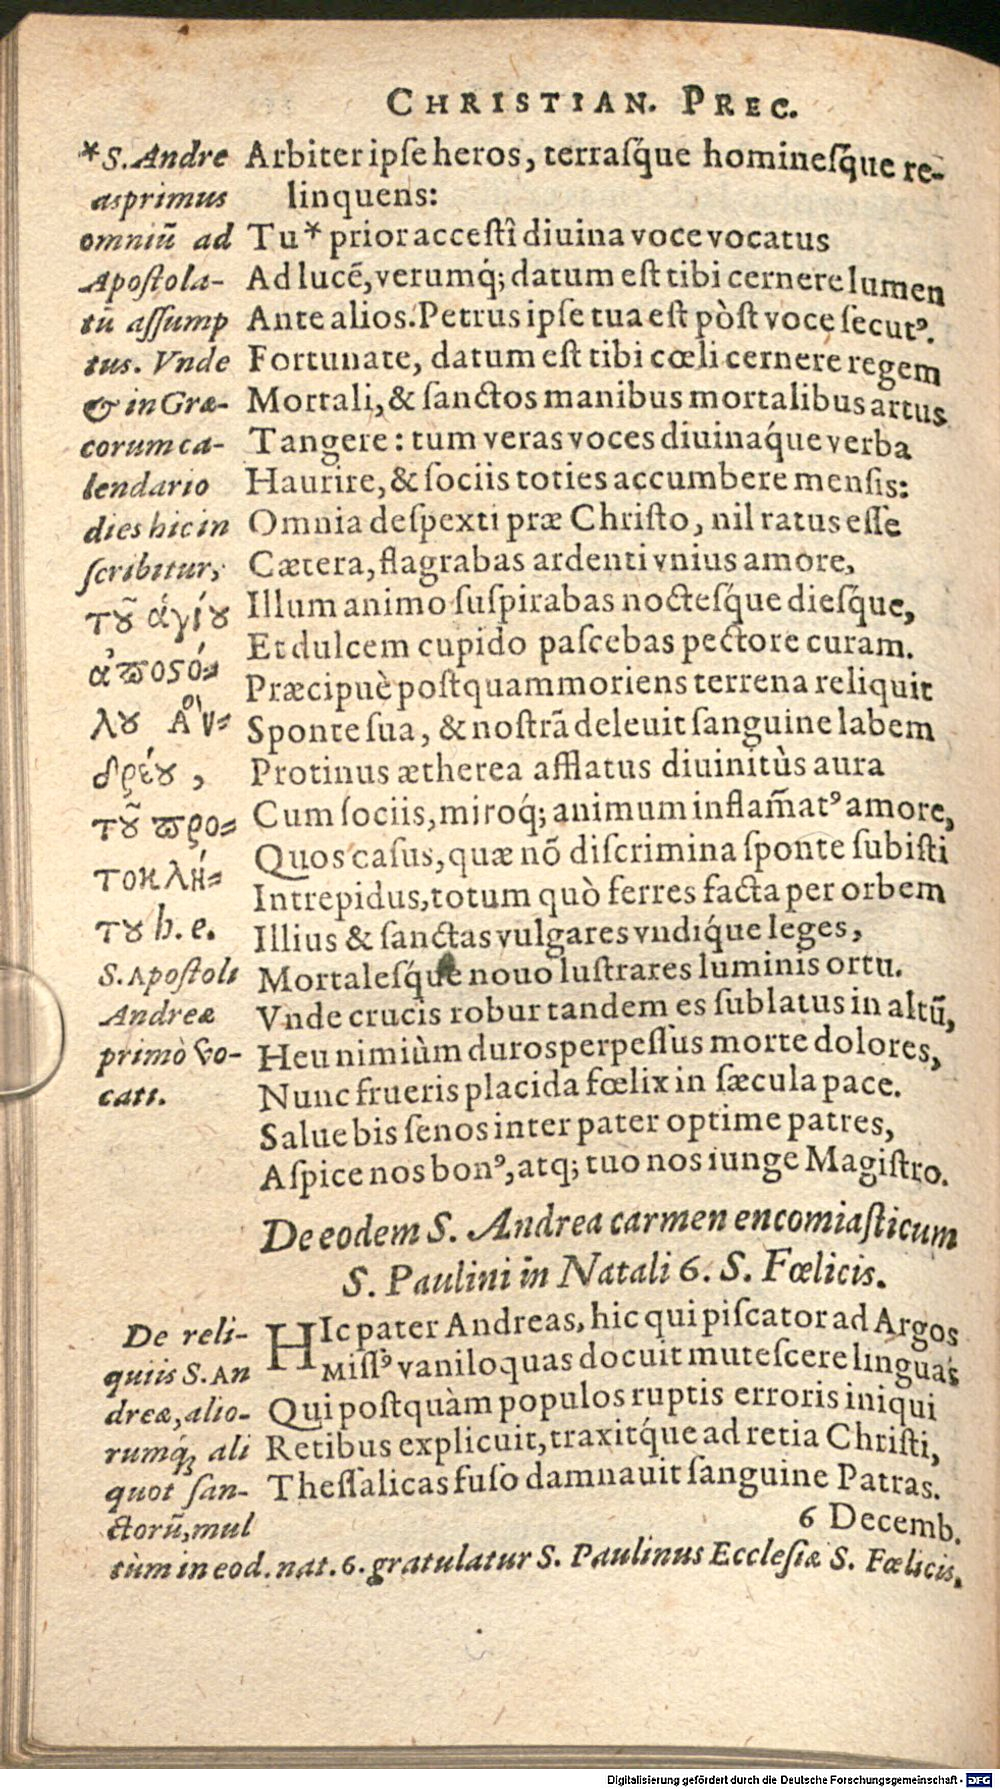 CHRISTIAN. PREC.
Arbiter ipſe heros, terraſq́ue hominesq́ue re-
linquens:
Tu* prior acceſtî diuina voce vocatus
Ad lucē, verumq́; datum eſt tibi cernere lumen
Ante alios. Petrus ipſe tua eſt pòſt voce ſecutꝰ.
Fortunate, datum eſt tibi cœli cernere regem
Mortali, & ſanctos manibus mortalibus artus
Tangere: tum veras voces diuinaq́ue verba
Haurire, & ſociis toties accumbere mensis:
Omnia deſpexti præ Chriſto, nil ratus eſſe
Cætera, flagrabas ardenti vnius amore,
Illum animo ſuſpirabas noctesq́ue dieſq́ue,
Et dulcem cupido paſcebas pectore curam.
Præcipuè poſtquam moriens terrena reliquit
Sponte ſua, & noſtrā deleuit ſanguine labem
Protinus ætherea afflatus diuinitùs aura
Cum ſociis, miroq́; animum inflam̄atꝰ amore,
Quos caſus, quæ nō diſcrimina ſponte ſubiſti
Intrepidus, totum quò ferres facta per orbem
Illius & ſanctas vulgares vndiq́ue leges,
Mortaleſq́ue nouo luſtrares luminis ortu.
Vnde crucis robur tandem es ſublatus in altū,
Heu nimiùm duros perpeſſus morte dolores,
Nunc frueris placida fœlix in ſæcula pace.
Salue bis ſenos inter pater optime patres,
Aſpice nos bonꝰ, atq; tuo nos iunge Magiſtro.
*S. Andre
as primus
omniū ad
Apoſtola-
tū aſſump
tus. Vnde
& in Græ-
corum ca-
lendario
dies hic in
ſcribitur,
τοῦ ἁγίου
ἀποστό-
λου Ἀν-
δρέου,
τοῦ πρω-
τοκλή-
του h. e.
S. Apoſtoli
Andreæ
primò vo-
cati.
De eodem S. Andrea carmen encomiaſticum
S. Paulini in Natali 6. S. Fœlicis.
HIc pater Andreas, hic qui piſcator ad Argos
Miſſꝰ vaniloquas docuit muteſcere linguas
Qui poſtquàm populos ruptis erroris iniqui
Retibus explicuit, traxitq́ue ad retia Chriſti,
Theſſalicas fuſo damnauit ſanguine Patras.
De reli-
quiis S. An
dreæ, alio-
rumq́; ali
quot ſan-
ctorū, mul
tùm in eod. nat. 6. gratulatur S. Paulinus Eccleſiæ S. Fœlicis.
6 Decemb.
Digitalisierung gefördert durch die Deutsche Forschungsgemeinschaft - DFG